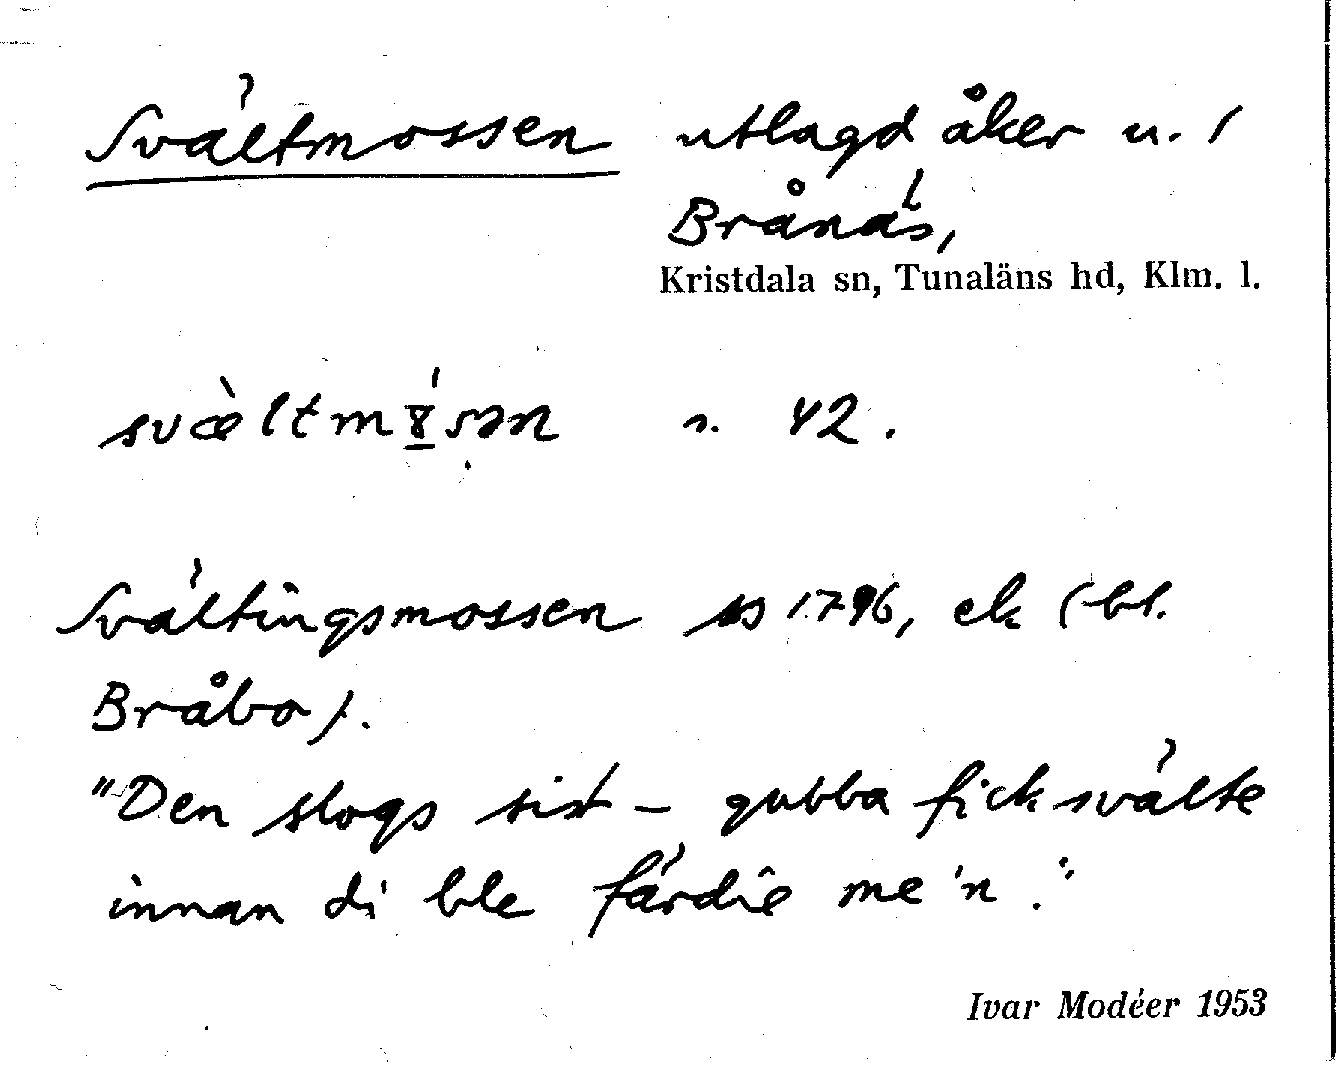 Svältmossen utlagd åker u. /
Brånäs,
Kristdala sn, Tunaläns hd, Klm. l.
svæ̀ltmɣ̱́sən s. 42.
Svältingsmossen ss 1796, ek (bl.
Bråbo).
"Den slogs sist – gubba fick svälte
innan di ble färdie me'n."
Ivar Modéer 1953